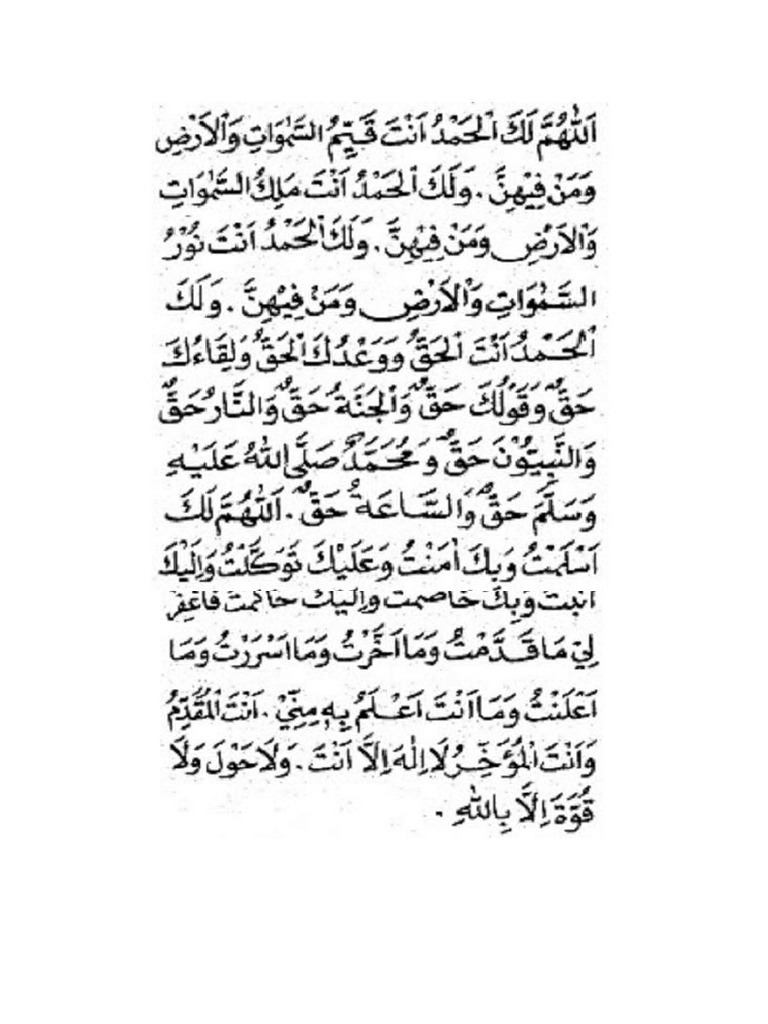 اَللّٰهُمَّ لَكَ الْحَمْدُ اَنْتَ قَيِّمُ السَّمٰوَاتِ وَالْاَرْضِ
وَمَنْ فِيْهِنَّ . وَلَكَ الْحَمْدُ اَنْتَ مَلِكُ السَّمٰوَاتِ
وَالْاَرْضِ وَمَنْ فِيْهِنَّ . وَلَكَ الْحَمْدُ اَنْتَ نُوْرُ
السَّمٰوَاتِ وَالْاَرْضِ وَمَنْ فِيْهِنَّ . وَلَكَ
الْحَمْدُ اَنْتَ الْحَقُّ وَوَعْدُكَ الْحَقُّ وَلِقَاءُكَ
حَقٌّ وَقَوْلُكَ حَقٌّ وَالْجَنَّةُ حَقٌّ وَالنَّارُ حَقٌّ
وَالنَّبِيُّوْنَ حَقٌّ وَمُحَمَّدٌ صَلَّى اللهُ عَلَيْهِ
وَسَلَّمَ حَقٌّ وَالسَّاعَةُ حَقٌّ . اَللّٰهُمَّ لَكَ
اَسْلَمْتُ وَبِكَ اٰمَنْتُ وَعَلَيْكَ تَوَكَّلْتُ وَاِلَيْكَ
انبت وبك خاصمت واليك حاكمت فاغفر
لِيْ مَا قَدَّمْتُ وَمَا اَخَّرْتُ وَمَا اَسْرَرْتُ وَمَا
اَعْلَنْتُ وَمَا اَنْتَ اَعْلَمُ بِهٖ مِنِّيْ . اَنْتَ الْمُقَدِّمُ
وَاَنْتَ الْمُؤَخِّرُ لَا اِلٰهَ اِلَّا اَنْتَ . وَلَا حَوْلَ وَلَا
قُوَّةَ اِلَّا بِاللهِ .